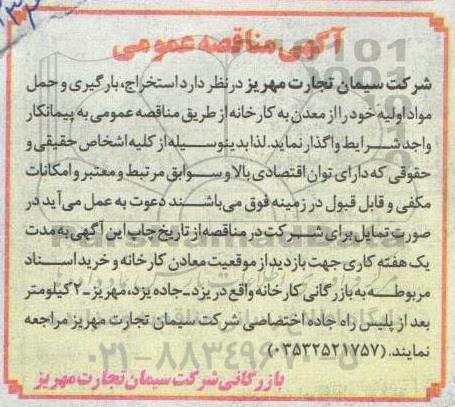 آگهی مناقصه عمومی
شرکت سیمان تجارت مهریز در نظر دارد استخراج، بارگیری و حمل
مواد اولیه خود را از معدن به کارخانه از طریق مناقصه عمومی به پیمانکار
واجد شرایط واگذار نماید. لذا بدینوسیله از کلیه اشخاص حقیقی و
حقوقی که دارای توان اقتصادی بالا و سوابق مرتبط و معتبر و امکانات
مکفی و قابل قبول در زمینه فوق می‌باشند دعوت به عمل می‌آید در
صورت تمایل برای شرکت در مناقصه از تاریخ چاپ این آگهی به مدت
یک هفته کاری جهت بازدید از موقعیت معادن کارخانه و خرید اسناد
مربوطه به بازرگانی کارخانه واقع در یزد-جاده یزد، مهریز-۲ کیلومتر
بعد از پلیس راه جاده اختصاصی شرکت سیمان تجارت مهریز مراجعه
نمایند. (۰۳۵۳۲۵۲۱۷۵۷)
۰۲۱-۸۸۳۴۹۶۷۰-۵
بازرگانی شرکت سیمان تجارت مهریز